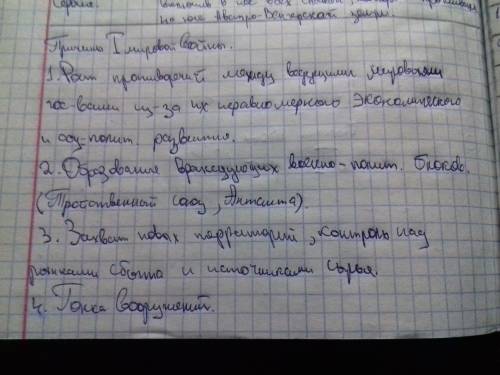 Сербия.
на юге Австро-Венгерской земли.
Причины I мировой войны.
1. Рост противоречий между ведущими мировыми
гос-вами из-за их неравномерного экономического
и общ-полит. развития.
2. Образование враждующих военно-полит. блоков.
(Тройственный союз, Антанта).
3. Захват новых территорий, контроль над
рынками сбыта и источниками сырья.
4. Гонка вооружений.